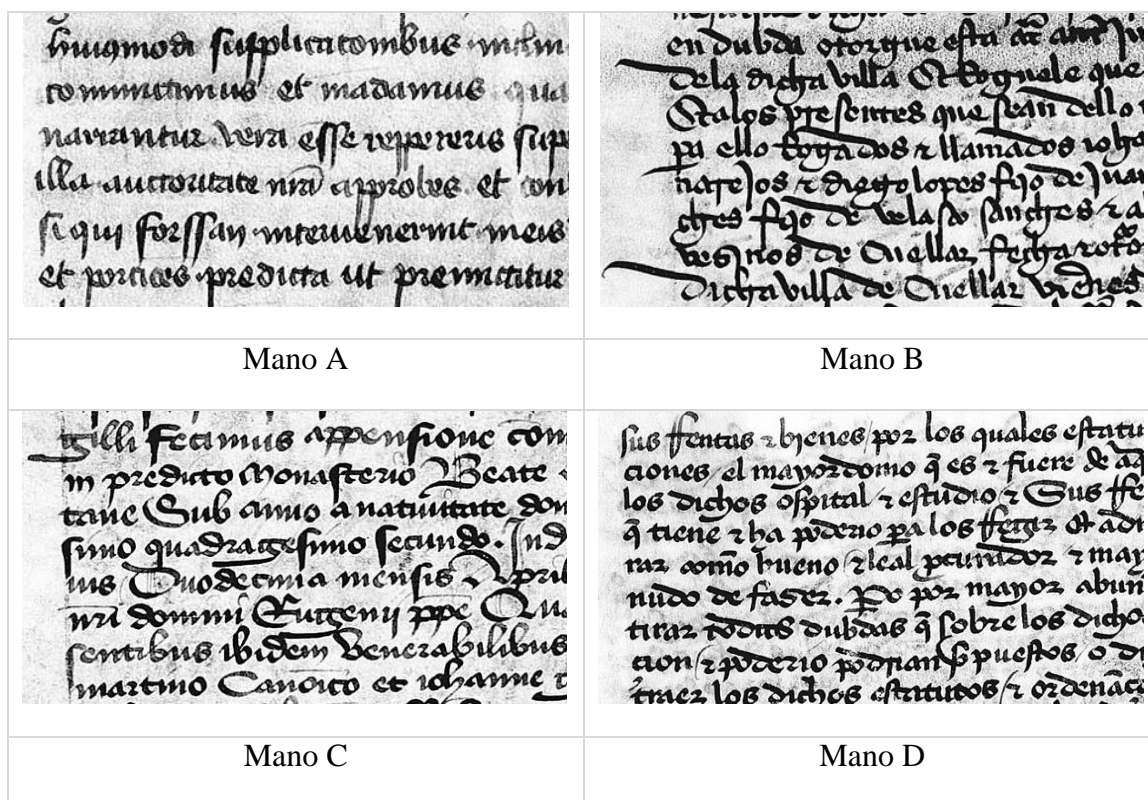 huiusmodi supplicationibus inclin
committimus et mandamus qua
narrantur vera esse reppereris sup
illa auctoritate nrã approbes et con
si qui forssan intervenerint meis
et porticos predicta ut premittitur
en dubda otorgue esta
dela dicha villa Et Roguele que
Et alos presentes que sean dello
pa ello Rogados & llamados
& diego lopes fijo de Juan
ches fijo de velasco sanches & a
vesinos de Cuellar fecha
Dicha villa de Cuellar viernes
Mano A
Mano B
gilli fecimus appensione com
in predicto Monasterio Beate
tane Sub anno a nativitate dom
simo quadragesimo secundo. Ind
ius Duodecima mensis Apri
nri domini Eugenii ppe Qua
sentibus ibidem Venerabilibus
martino Canonico et iohanne
sus Rentas & bienes por los quales estatu
ciones el mayordomo q̃ es & fuere de
los dichos ospital & estudio & Sus Re
q̃ tiene & ha poderio pa los Regir Et
rar como bueno & leal pcurador & may
nudo de faser. Po por mayor abun
tirar todas dubdas q̃ sobre los dicho
cion & poderio podrian puestos o
traer los dichos estatutos & ordenac
Mano C
Mano D